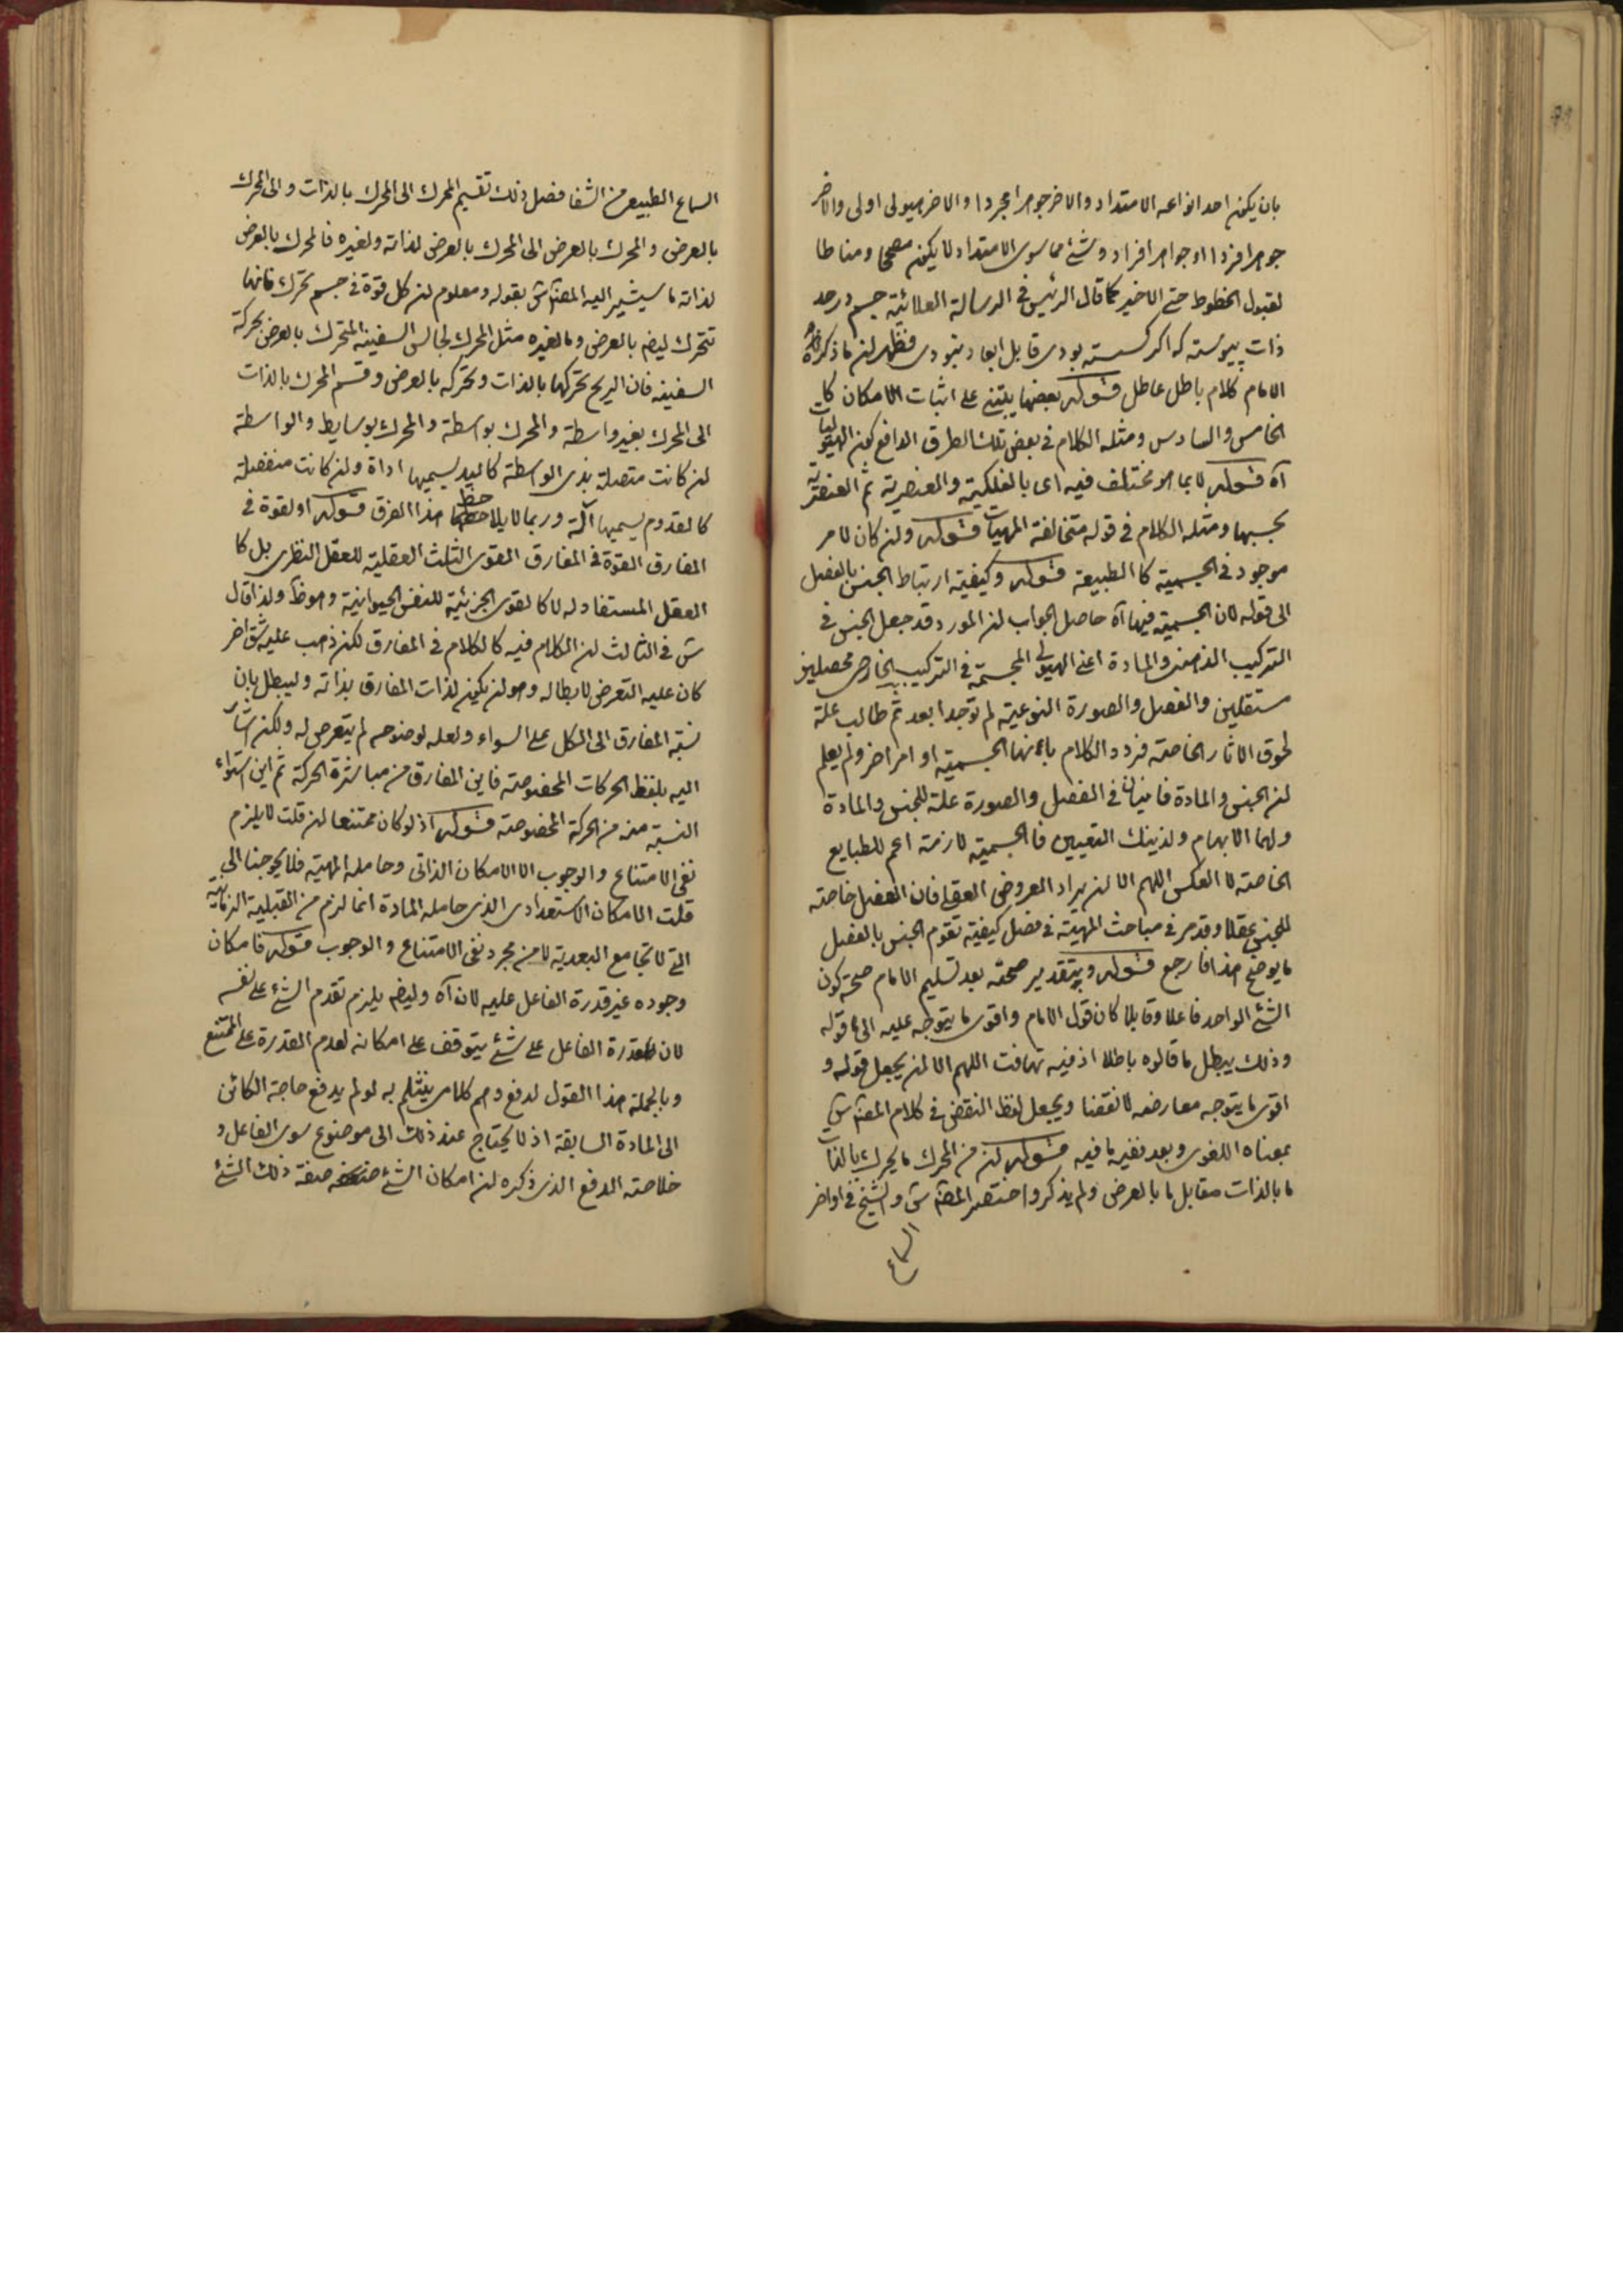 بان يكون احد انواعه الامتداد والاخر جوهرا مجردا والاخر هيولى اولى والاخر
جوهرا فردا او جواهر افراد وشئ مما سوى الامتداد لا يكون مصححا ومناطا
لقبول الخطوط حتى الاخير كما قال الرئيس في الرسالة العلائية جسم در حد
ذات پيوسته كه اكر كسسته بودى قابل ابعاد نبودى فظهر ان ما ذكره
الامام كلام باطل عاطل قوله بعضها يبتنى على اثبات الامكان كا
الخامس والسادس ومثله الكلام في بعض تلك الطرق الدافع كون الهيوليات
آه قوله لا بما هو مختلف فيه اى بالفلكية والعنصرية ثم العنصرية
بحسبها ومثله الكلام في قوله متخالفة المهيات قوله وان كان لامر
موجود في الجسمية كالطبيعة قوله وكيفية ارتباط الجنس بالفصل
الى قوله لان الجسمية فيها آه حاصل الجواب ان المورد قد جعل الجنس في
التركيب الذهنى والمادة اعنى الهيولى المجسمة في التركيب الخارجى محصلين
مستقلين والفصل والصورة النوعية لم توجدا بعد ثم طالب علة
لحوق الاثار الخاصة فردد الكلام بانها الجسمية او امر اخر ولم يعلم
ان الجنس والمادة فانيان في الفصل والصورة علة للجنس والمادة
ولهما الابهام ولذينك التعيين فالجسمية لازمة اعم للطبايع
الخاصة لا العكس اللهم الا ان يراد العروض العقلى فان الفصل خاصة
للجنس عقلا وقد مر في مباحث المهية في فصل كيفية تقوم الجنس بالفصل
ما يوضح هذا فارجع قوله وبتقدير صحته بعد تسليم الامام صحة كون
الشئ الواحد فاعلا وقابلا كان قول الامام واقوى ما يتوجه عليه الى قوله
وذلك يبطل ما قالوه باطلا اذ فيه تهافت اللهم الا ان يجعل قوله و
اقوى ما يتوجه معارضه لا نقضا ويجعل لفظ النقض في كلام المص ش
بمعناه اللغوى وبعد نفيه ما فيه قوله ان من المحرك ما يحرك بالذات
ما بالذات مقابل ما بالعرض ولم يذكروا اختصر المص ش والشيخ في اواخر
السماع
السماع الطبيعى من الشفا فصل ذلك تقسيم المحرك الى المحرك بالذات والى المحرك
بالعرض والمحرك بالعرض الى المحرك بالعرض لذاته ولغيره فالمحرك بالعرض
لذاته ما سيشير اليه المص ش بقوله ومعلوم ان كل قوة في جسم تحرك فانها
تتحرك ايضا بالعرض وما لغيره مثل المحرك لجالس السفينة المتحرك بالعرض بحركة
السفينة فان الريح تحركها بالذات وتحركه بالعرض وقسم المحرك بالذات
الى المحرك بغير واسطة والمحرك بواسطة والمحرك بوسايط والواسطة
ان كانت متصلة بذى الواسطة كاليد يسميها اداة وان كانت منفصلة
كالقدوم يسميها آلة وربما لا يلاحظ هذا الفرق قوله او لقوة في
المفارق القوة في المفارق القوى الثلث العقلية للعقل النظرى بل كا
العقل المستفاد له لا كالقوى الجزئية للنفس الحيوانية وهو ظ ولذا قال
ش في الثالث ان الكلام فيه كالكلام في المفارق لكن ذهب عليه شق اخر
كان عليه التعرض لابطاله وهو ان يكون لذات المفارق بذاته وليبطل بان
نسبة المفارق الى الكل على السواء ولعله لوضوحه لم يتعرض له ولكن اشار
اليه بلفظ الحركات المخصوصة فاين المفارق من مباشرة الحركة ثم اين استواء
النسبة منه من الحركة المخصوصة قوله اذ لو كان ممتنعا ان قلت لا يلزم
نفى الامتناع والوجوب الا الامكان الذاتى وحامله المهية فلا يحوجنا الى
قلت الامكان الاستعدادى الذى حامله المادة انما لزم من القبلية الزمانية
التى لا تجامع البعدية لا من مجرد نفى الامتناع والوجوب قوله فامكان
وجوده غير قدرة الفاعل عليه لان آه وايضا يلزم تقدم الشئ على نفسه
لان قدرة الفاعل على شئ يتوقف على امكانه لعدم القدرة على الممتنع
وبالجملة هذا القول لدفع وهم كلامى ينثلم به لو لم يدفع حاجة الكائن
الى المادة السابقة اذ لا يحتاج عند ذلك الى موضوع سوى الفاعل و
خلاصة الدفع الذى ذكره ان امكان الشئ صفة ذلك الشئ